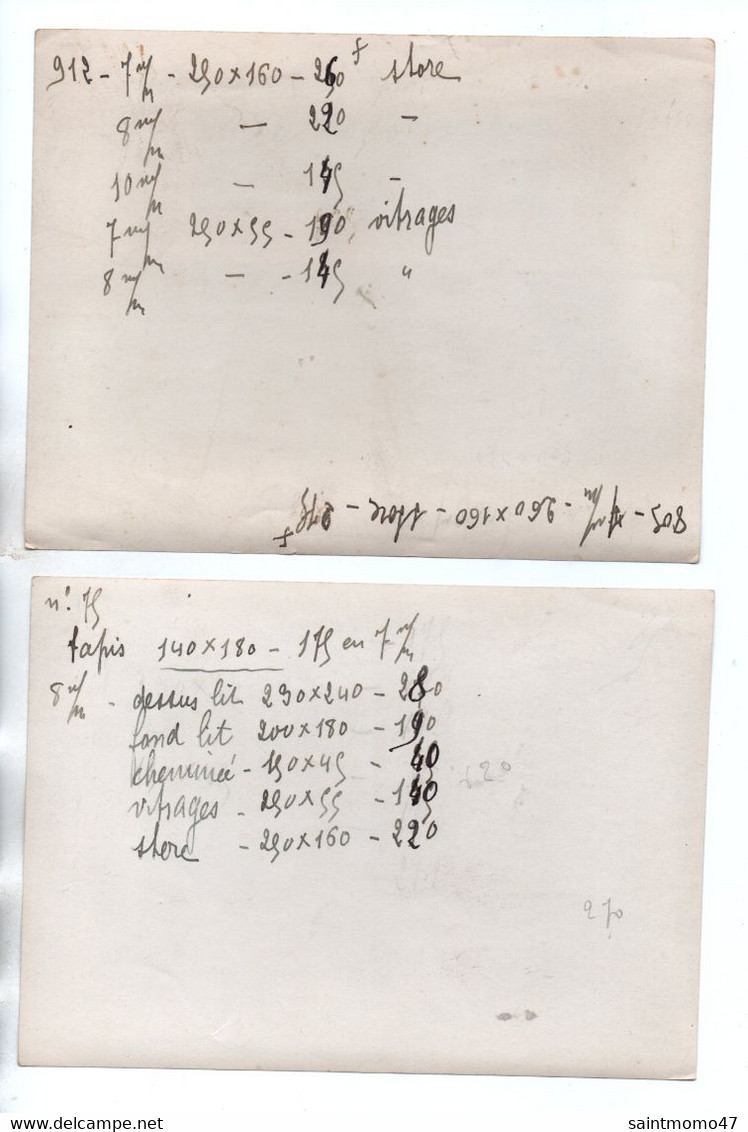 912 - 7 m/m - 250 x 160 - 260 f store
8 m/m — 220 -
10 m/m — 145 -
7 m/m 250 x 55 - 190 vitrages
8 m/m — - 145 "
805 - m/m - 260 x 160 - store - 215 f
n° 75
tapis 140 x 180 - 175 en 7 m/m
8 m/m - dessus lit 230 x 240 - 280
fond lit 200 x 180 - 190
cheminée - 150 x 45 - 40
vitrages - 250 x 55 - 140
store - 250 x 160 - 220
270
saintmomo47